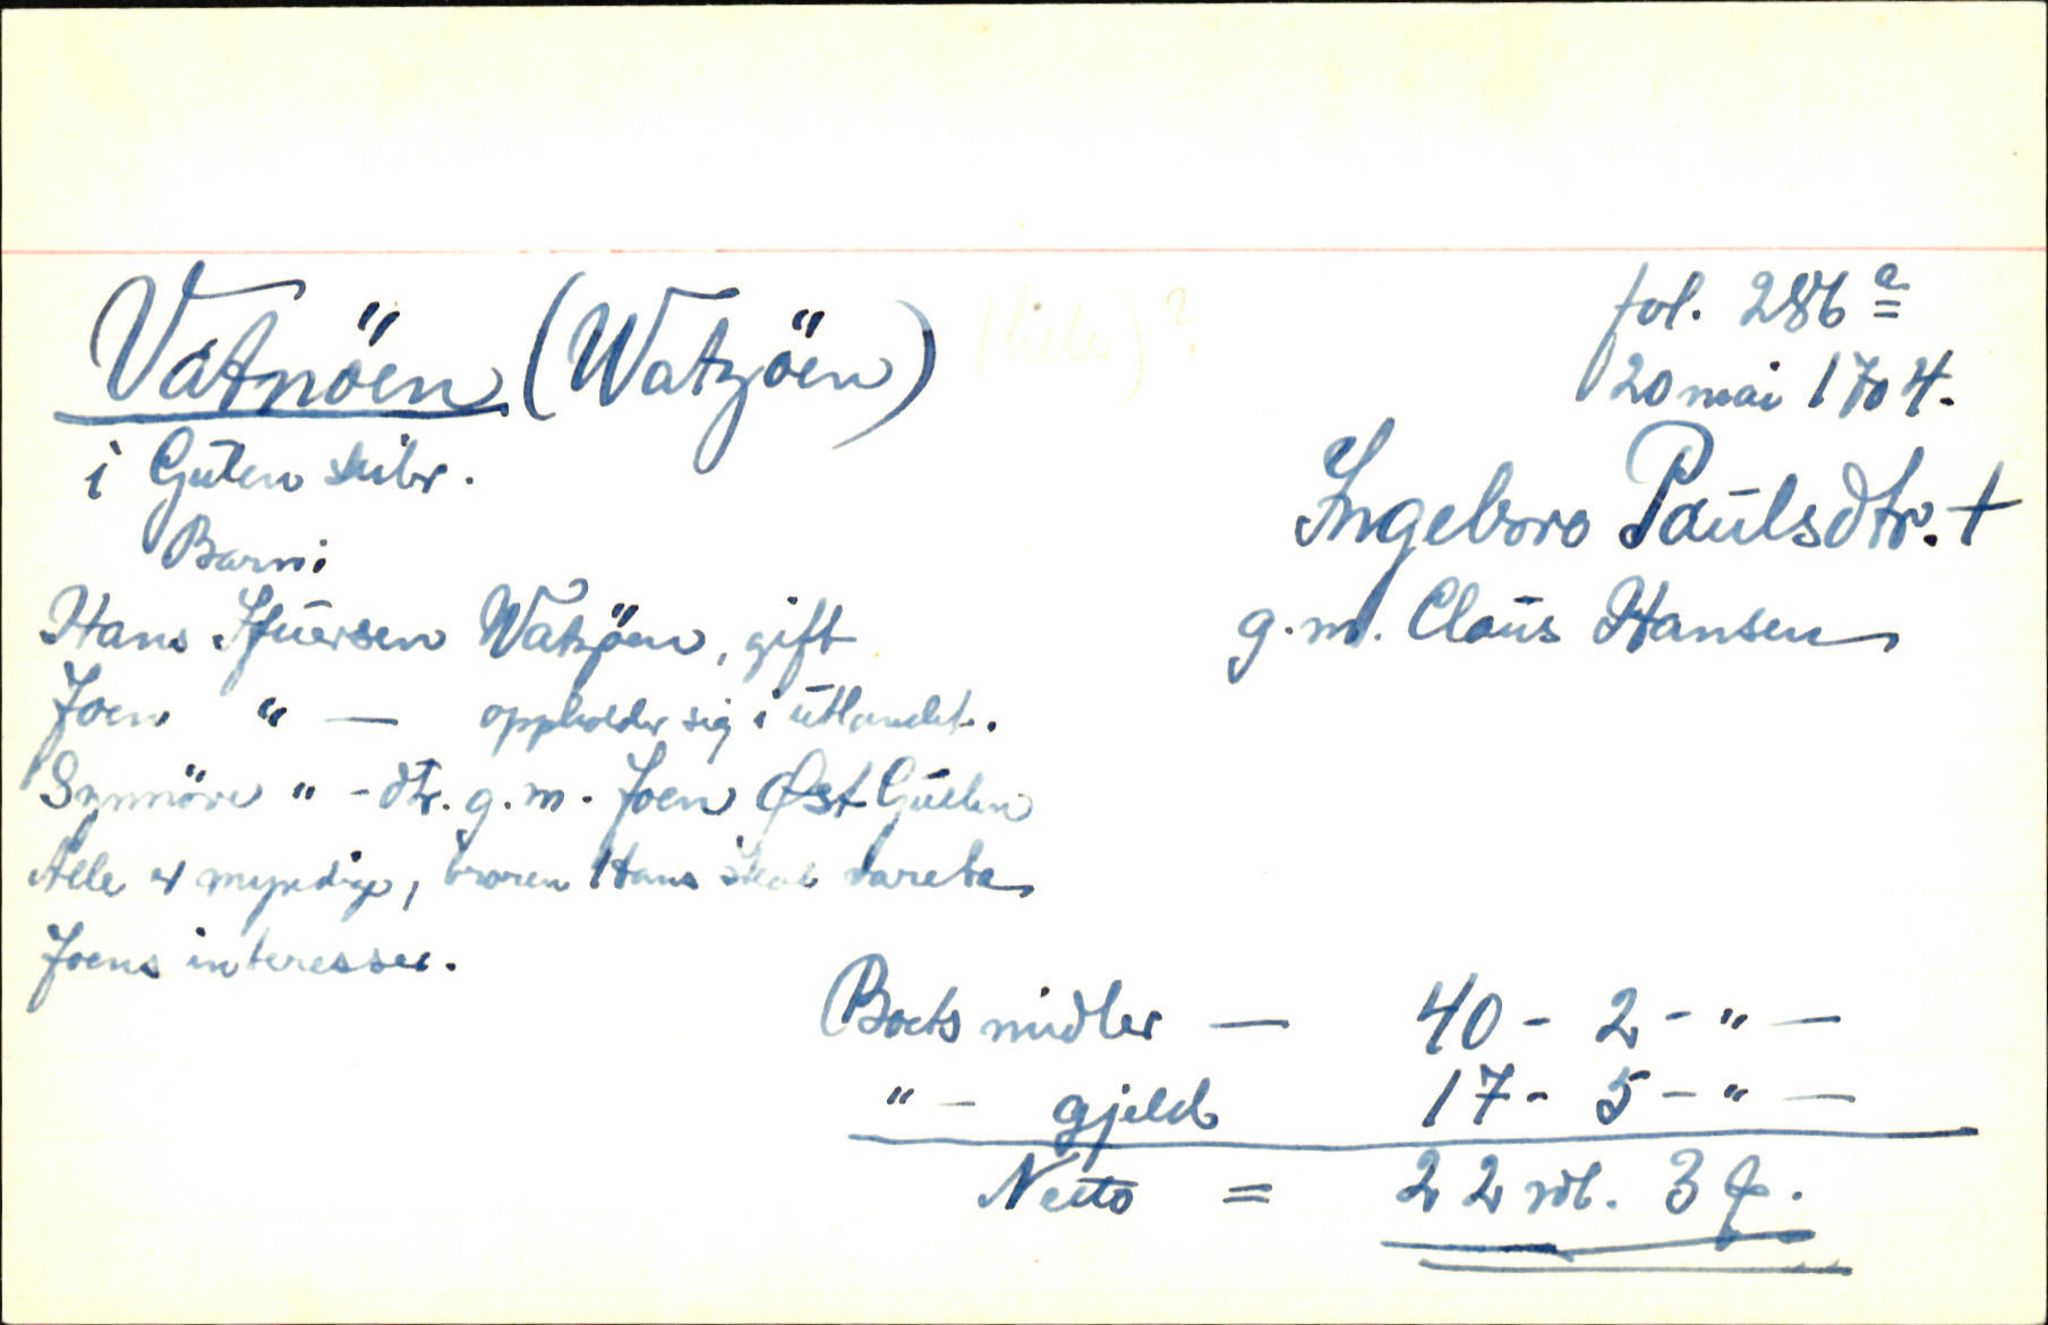 Vatnöen (Watzöen)
i Gulen skibr.
fol. 286 a
20 mai 1704.
Ingeboro Paulsdtr. †
g.m. Claus Hansen
Barn:
Hans Ifuersen Watzöen, gift
Joen " — oppholder sig i utlandet.
Synnöve " - dtr. g.m. Joen Øst Gulen
Alle er myndige, broren Hans skal vareta
Joens interesser.
Boets midler — 40 - 2 - " —
" - gjeld 17 - 5 - " —
Netto = 22 rdl. 3 ƒ.